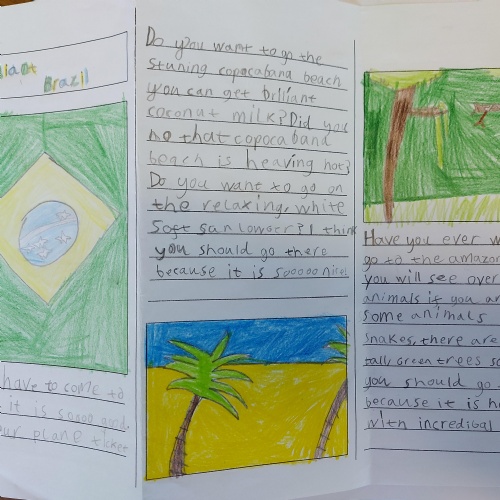 liant
Brazil
have to come to
it is soooo good.
our plane ticket
Do you want to go the
stuning copacabana beach
you can get brlliant
coconut milk? Did you
no that copocaband
beach is heaving hot?
Do you want to go on
the relaxing, white
Soft san lowser? I think
you should go there
because it is sooooo nice!
Have you ever w
go to the amazon
you will see over
animals if you ar
some animals
snakes, there are
tall green trees so
you should go
because it is h
with incredibal